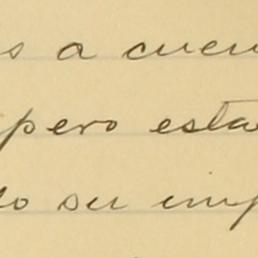 s a cuen
pero esta
do su imp